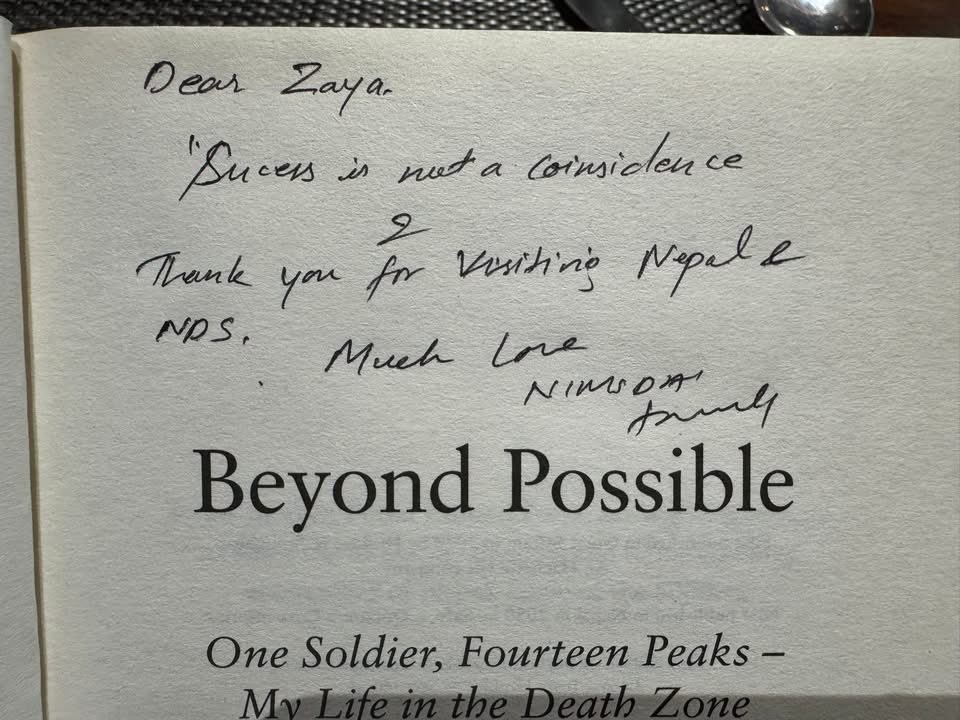 Dear Zaya.
"Sucess is not a coinsidence
&
Thank you for visiting Nepal &
NDS.
Much Love
NIMSDAI
Beyond Possible
One Soldier, Fourteen Peaks –
My Life in the Death Zone